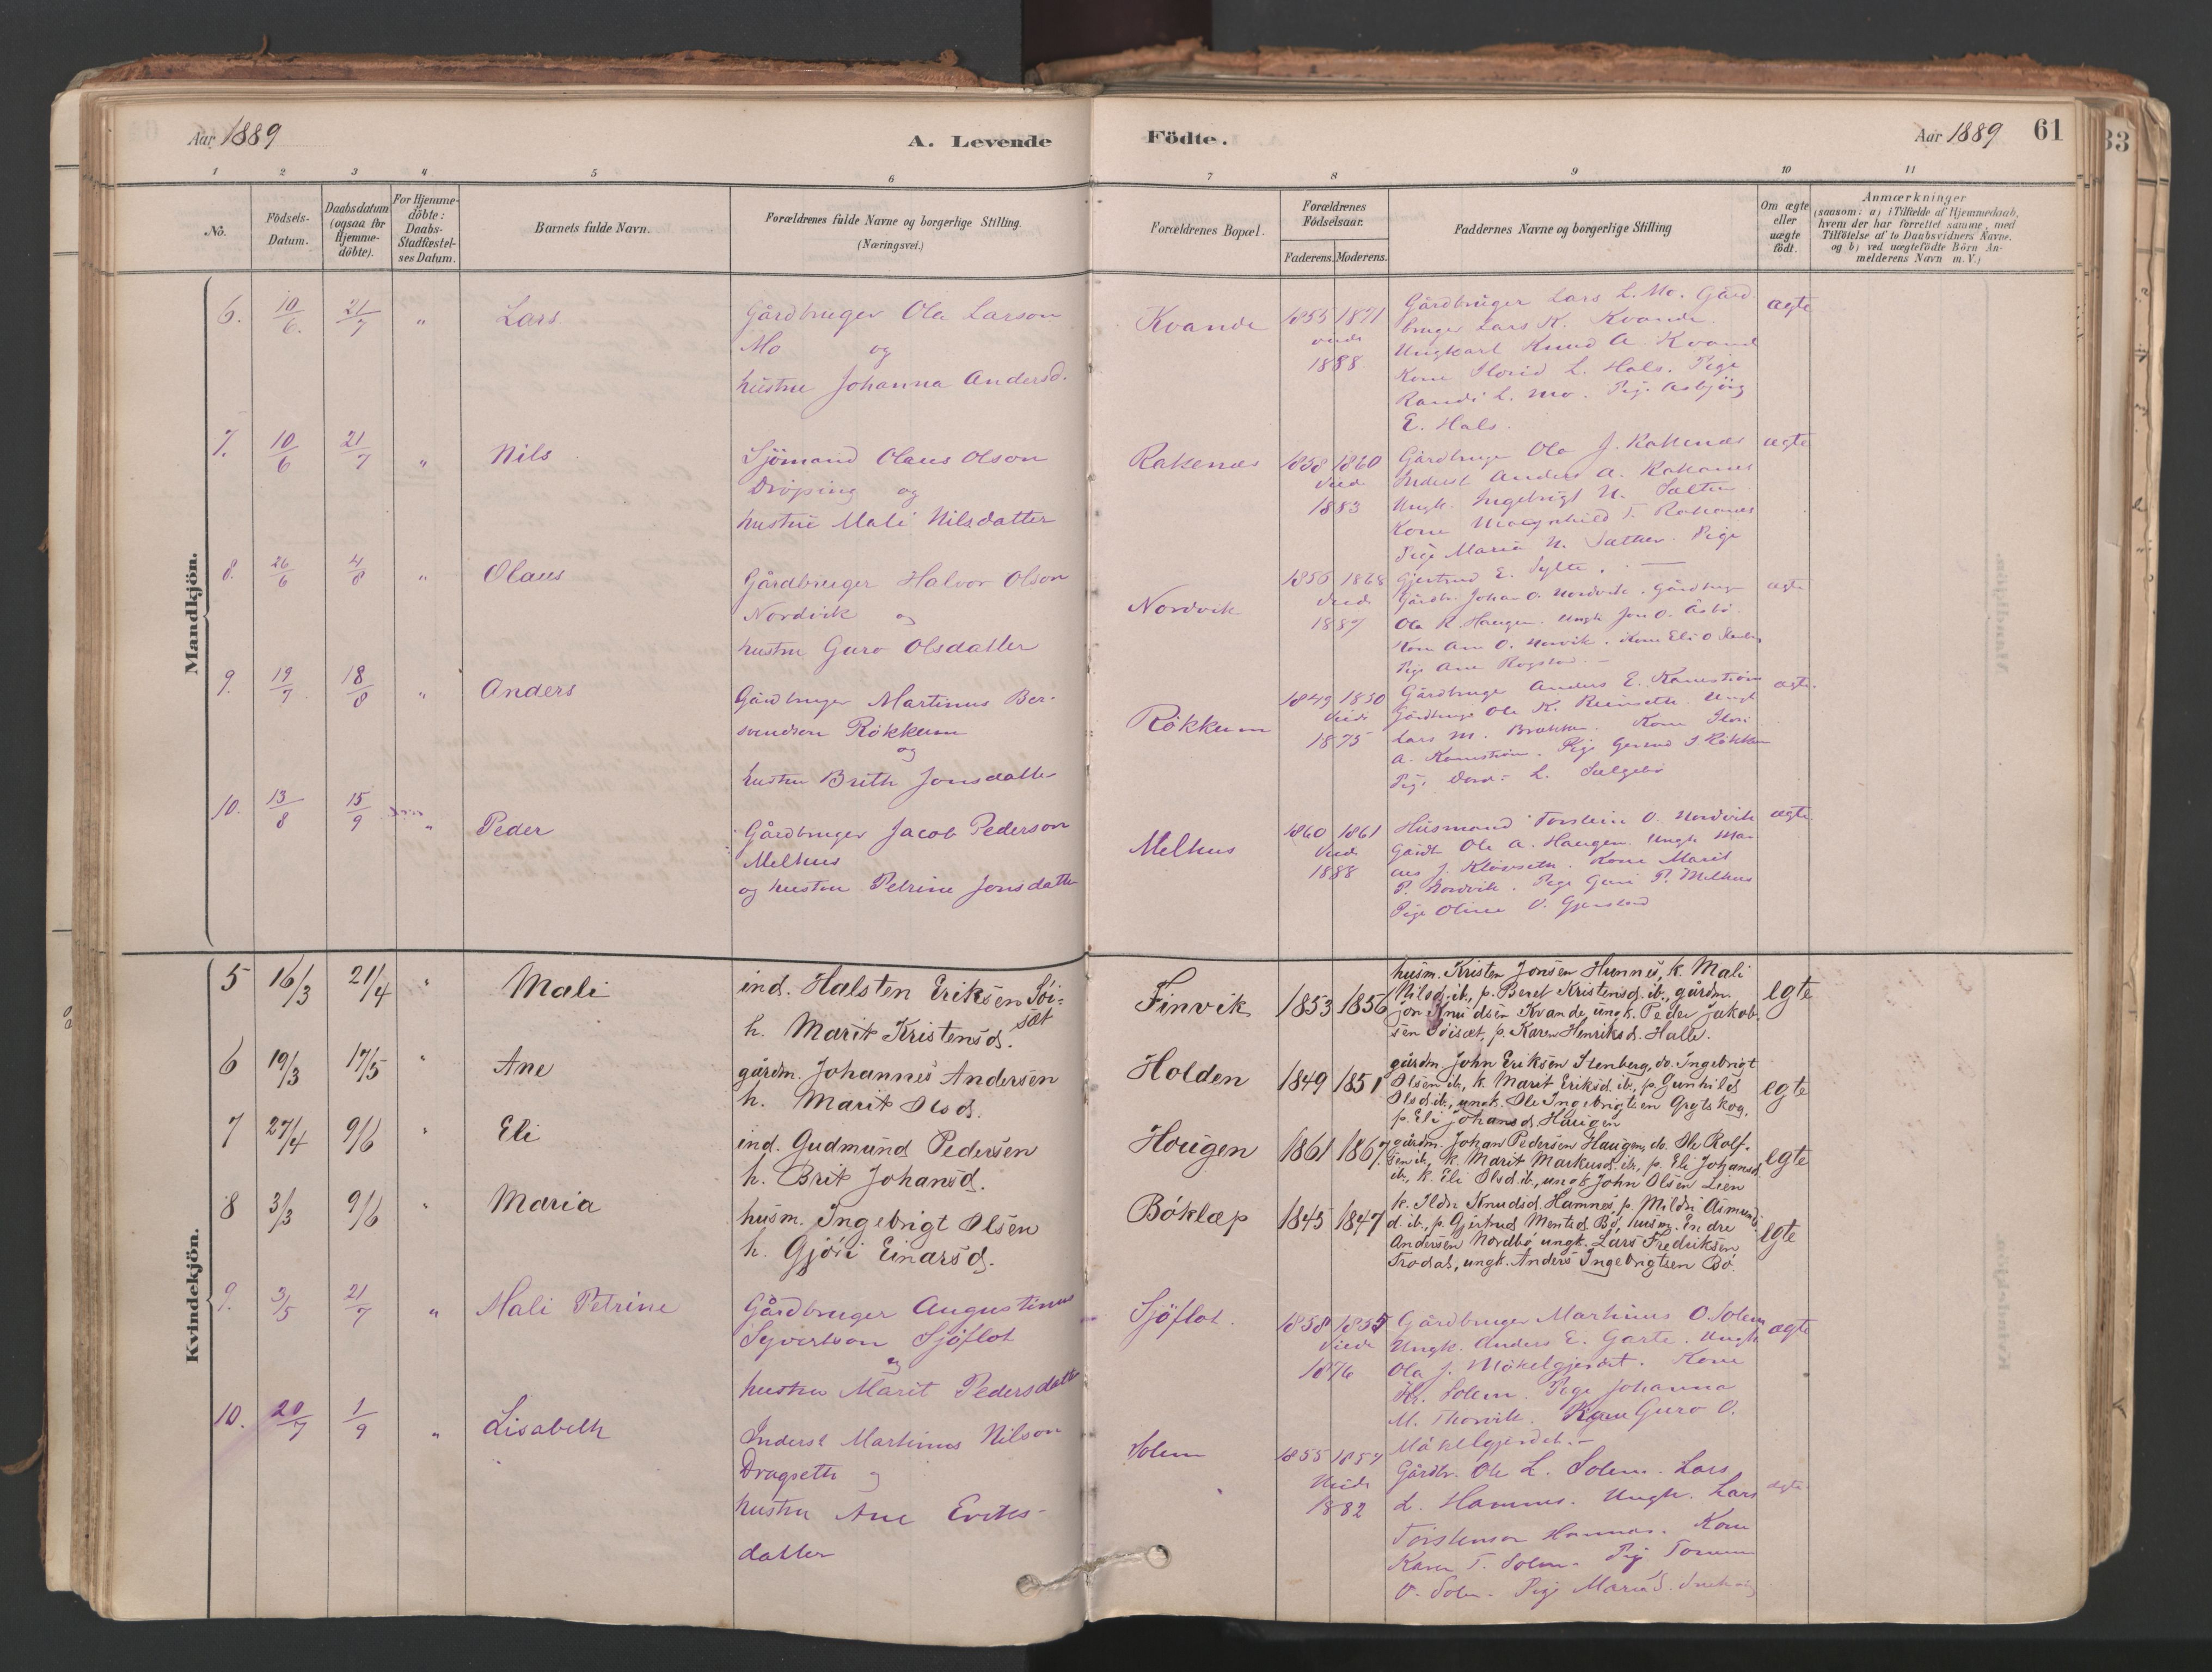 Aar 1889
A. Levende
Födte.
Aar 1889
61
33
1 2 3 4 5 6 7 8 9 10 11
No.
Födsels-
Datum.
Daabsdatum
(ogsaa for
Hjemme-
döbte).
For Hjemme-
döbte:
Daabs-
Stadfæstel-
ses Datum.
Barnets fulde Navn.
Forældrenes fulde Navne og borgerlige Stilling.
(Næringsvei.)
Forældrenes Bopæl.
Forældrenes
Födselsaar.
Faderens. Moderens.
Faddernes Navne og borgerlige Stilling
Om ægte
eller
uægte
födt.
Anmærkninger
(saasom: a) i Tilfælde af Hjemmedaab,
hvem der har forrettet samme, med
Tilföielse af to Daabsvidners Navne,
og b) ved uægtefödte Börn An-
melderens Navn m. V.)
Mandkjön.
6. 10/6. 21/7 " Lars
Gårdbruger Ola Larson
Mo og
hustru Johanna Andersd.
Kvande
1855 1871
1888
Gårdbruger Lars L. Mo. Gård
bruger Lars K. Kvande
Ungkarl Knud A. Kvand
Kone L. Hals. Pige
Randi L. Mo. Pig. Asbjörg
E. Hals.
ægte
7. 10/6 21/7 " Nils
Sjömand Olaus Olson
Dröping og
hustru Mali Nilsdatter
Rakenæs
1858 1860
Vied
1883
Gårdbruger Ola J.
Inderst Anders A.
Ungk. Ingebrigt N.
Kone
Pige Maria N. Pige
Gjertrud E. Sylte.
ægte
8. 26/6 4/8 " Olaus
Gårdbruger Halvor Olson
Nordvik og
hustru Guro Olsdatter
Nordvik
1856 1868
Vied
1887
Gårdb. Johan O. Nordvik. Gårdbruger
Ola K. Haugen. Ungk Jon O.
Kone Ane O. Kone Eli O
Pige Ane Rogstad
ægte
9. 19/7 18/8 " Anders
Gårdbruger Martinus Ber-
svendson Rökkum
og
hustru Brith Jonsdatter
Rökkum
1849 1850
Vied
1875
Gårdbruger Anders E.
Gårdbruger Ole K. Ungk
Lars M. Kone
A. Pige Rökkum
Pig. L.
ægte.
10. 13/8 15/9 " Peder
Gårdbruger Jacob Pederson
Melhus
og hustru Petrine Jonsdatter
Melhus
1860 1861
Vied
1888
Husmand Torstein O. Nordvik
Gårdb Ole A. Haugen. Ungk Mar
Kone Marit
P. Nordvik. Pige P. Melhus
Pige Oline O.
ægte
Kvindekjön.
5 16/3 21/4 " Mali
ind. Halsten Eriksen Söi-
sæt
h. Marit Kristensd.
Finvik 1853 1856
husm. Kristen Jonsen Hunnes, k. Mali
Nilsd. ib., p. Beret Kristensd. ib., gårdm.
Jon Knudsen Kvande, ungk. Peder Jakob-
sen Söisæt, p. Karen Henriksd. Halle.
egte
6 19/3 17/5 " Ane
gårdm. Johannes Andersen
h. Marit Olsd.
Holden 1849 1851
gårdm. John Eriksen Stenberg, do. Ingebrigt
Olsen ib., k. Marit Eriksd. ib., p. Gunhild
Olsd. ib., ungk. Ole Ingebrigtsen
p. Eli Johansd. Haugen
egte
7 27/4 9/6 " Eli
ind. Gudmund Pedersen
h. Brit Johansd.
Hougen 1861 1867
gårdm. Johan Pedersen Haugen, do. Ole Rolf-
sen ib., k. Marit Markusd. ib., p. Eli Johansd.
ib., k. Eli Olsd. ib., ungk. John Olsen Lien
egte
8 3/3 9/6 " Maria
husm. Ingebrigt Olsen
h. Gjöri Einarsd.
Böklæp 1845 1847
k. Ildri Knudsd. Hamnes, p. Mildri Asmund
d. ib., p. Gjertrud Bö, husm. Endre
Andersen Nordbö, ungk. Lars Fredriksen
Trodal, ungk. Anders Ingebrigtsen Bö.
egte
9. 3/5 21/7 " Mali Petrine
Gårdbruger Augustinus
Syvertson Sjöflot
og
hustru Marit Pedersdatter
Sjöflot.
1858 1855
Viede
1876
Gårdbruger Martinus O. Solem
Ungk. Anders E. Garte. Ungk
Ola J. Mökelgjerdet. Kone
Solem. Pige Johanna
M. Thorvik. Guro O.
Mökelgjerdet.-
ægte
10. 20/7 1/9 " Lisabeth
Inderst Martinus Nilson
Dragseth og
hustru Ane Eriks-
datter
Solem
1855 1857
Viede
1882
Gårdbr. Ole L. Solem. Lars
L. Hamnes. Ungk. Lars
Torstenson Hamnes. Kone
Karen T. Solem. Pig
O. Solem. Pige Maria
ægte